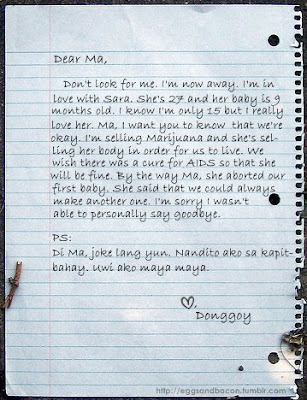 Dear Ma,
Don't look for me. I'm now away. I'm in
love with Sara. She's 27 and her baby is 9
months old. I know I'm only 15 but I really
love her. Ma, I want you to know that we're
okay. I'm selling Marijuana and she's sel-
ling her body in order for us to live. We
wish there was a cure for AIDS so that she
will be fine. By the way Ma, she aborted our
first baby. She said that we could always
make another one. I'm sorry I wasn't
able to personally say goodbye.
PS:
Di Ma, joke lang yun. Nandito ako sa kapit-
bahay. Uwi ako maya maya.
♡,
Donggoy
http://eggsandbacon.tumblr.com